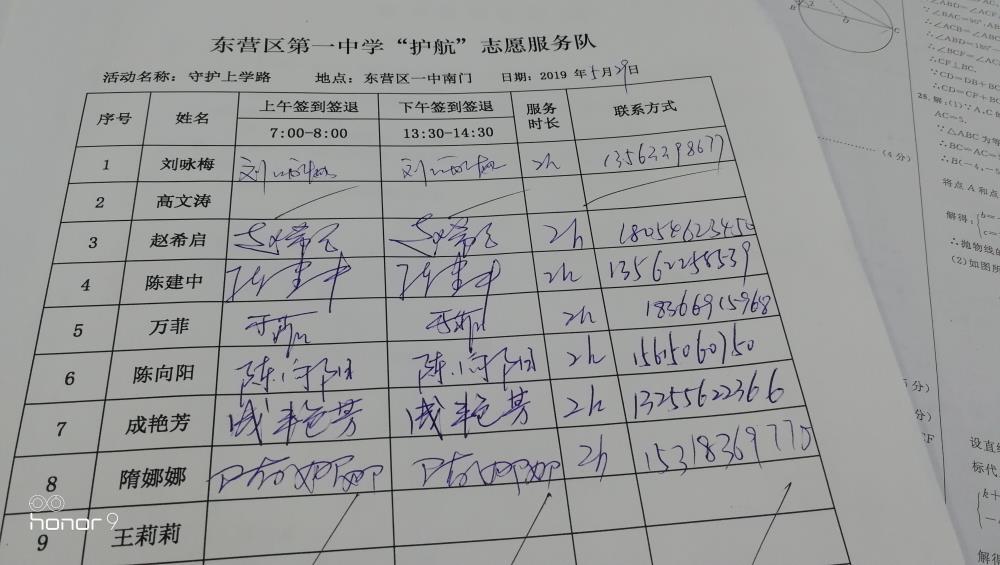 东营区第一中学“护航”志愿服务队
活动名称: 守护上学路 地点: 东营区一中南门 日期: 2019 年 5 月 29 日
序号 姓名 上午签到签退 下午签到签退 服务时长 联系方式
7:00-8:00 13:30-14:30
1 刘咏梅 刘咏梅 刘咏梅 2h 13562298677
2 高文涛
3 赵希启 赵希启 赵希启 2h 18054623450
4 陈建中 陈建中 陈建中 2h 13562258539
5 万菲 万菲 万菲 2h 18366915968
6 陈向阳 陈向阳 陈向阳 2h 15615060750
7 成艳芳 成艳芳 成艳芳 2h 13255622366
8 隋娜娜 隋娜娜 隋娜娜 2h 15318369775
9 王莉莉
honor 9
B
D
C
∴∠ACB=∠ABC
∴CF⊥BC.
∵CD=DB+BC
∴CD=CF+BC
28.解:(1)∵A,C
AC=5,
∵△ABC 为等
∴BC=AC=
∴B(-4,-5
(4 分)
将点 A 和点
解得:
∴抛物线的
(2)如图所
分)
分)
CF
设直线
标代
解得